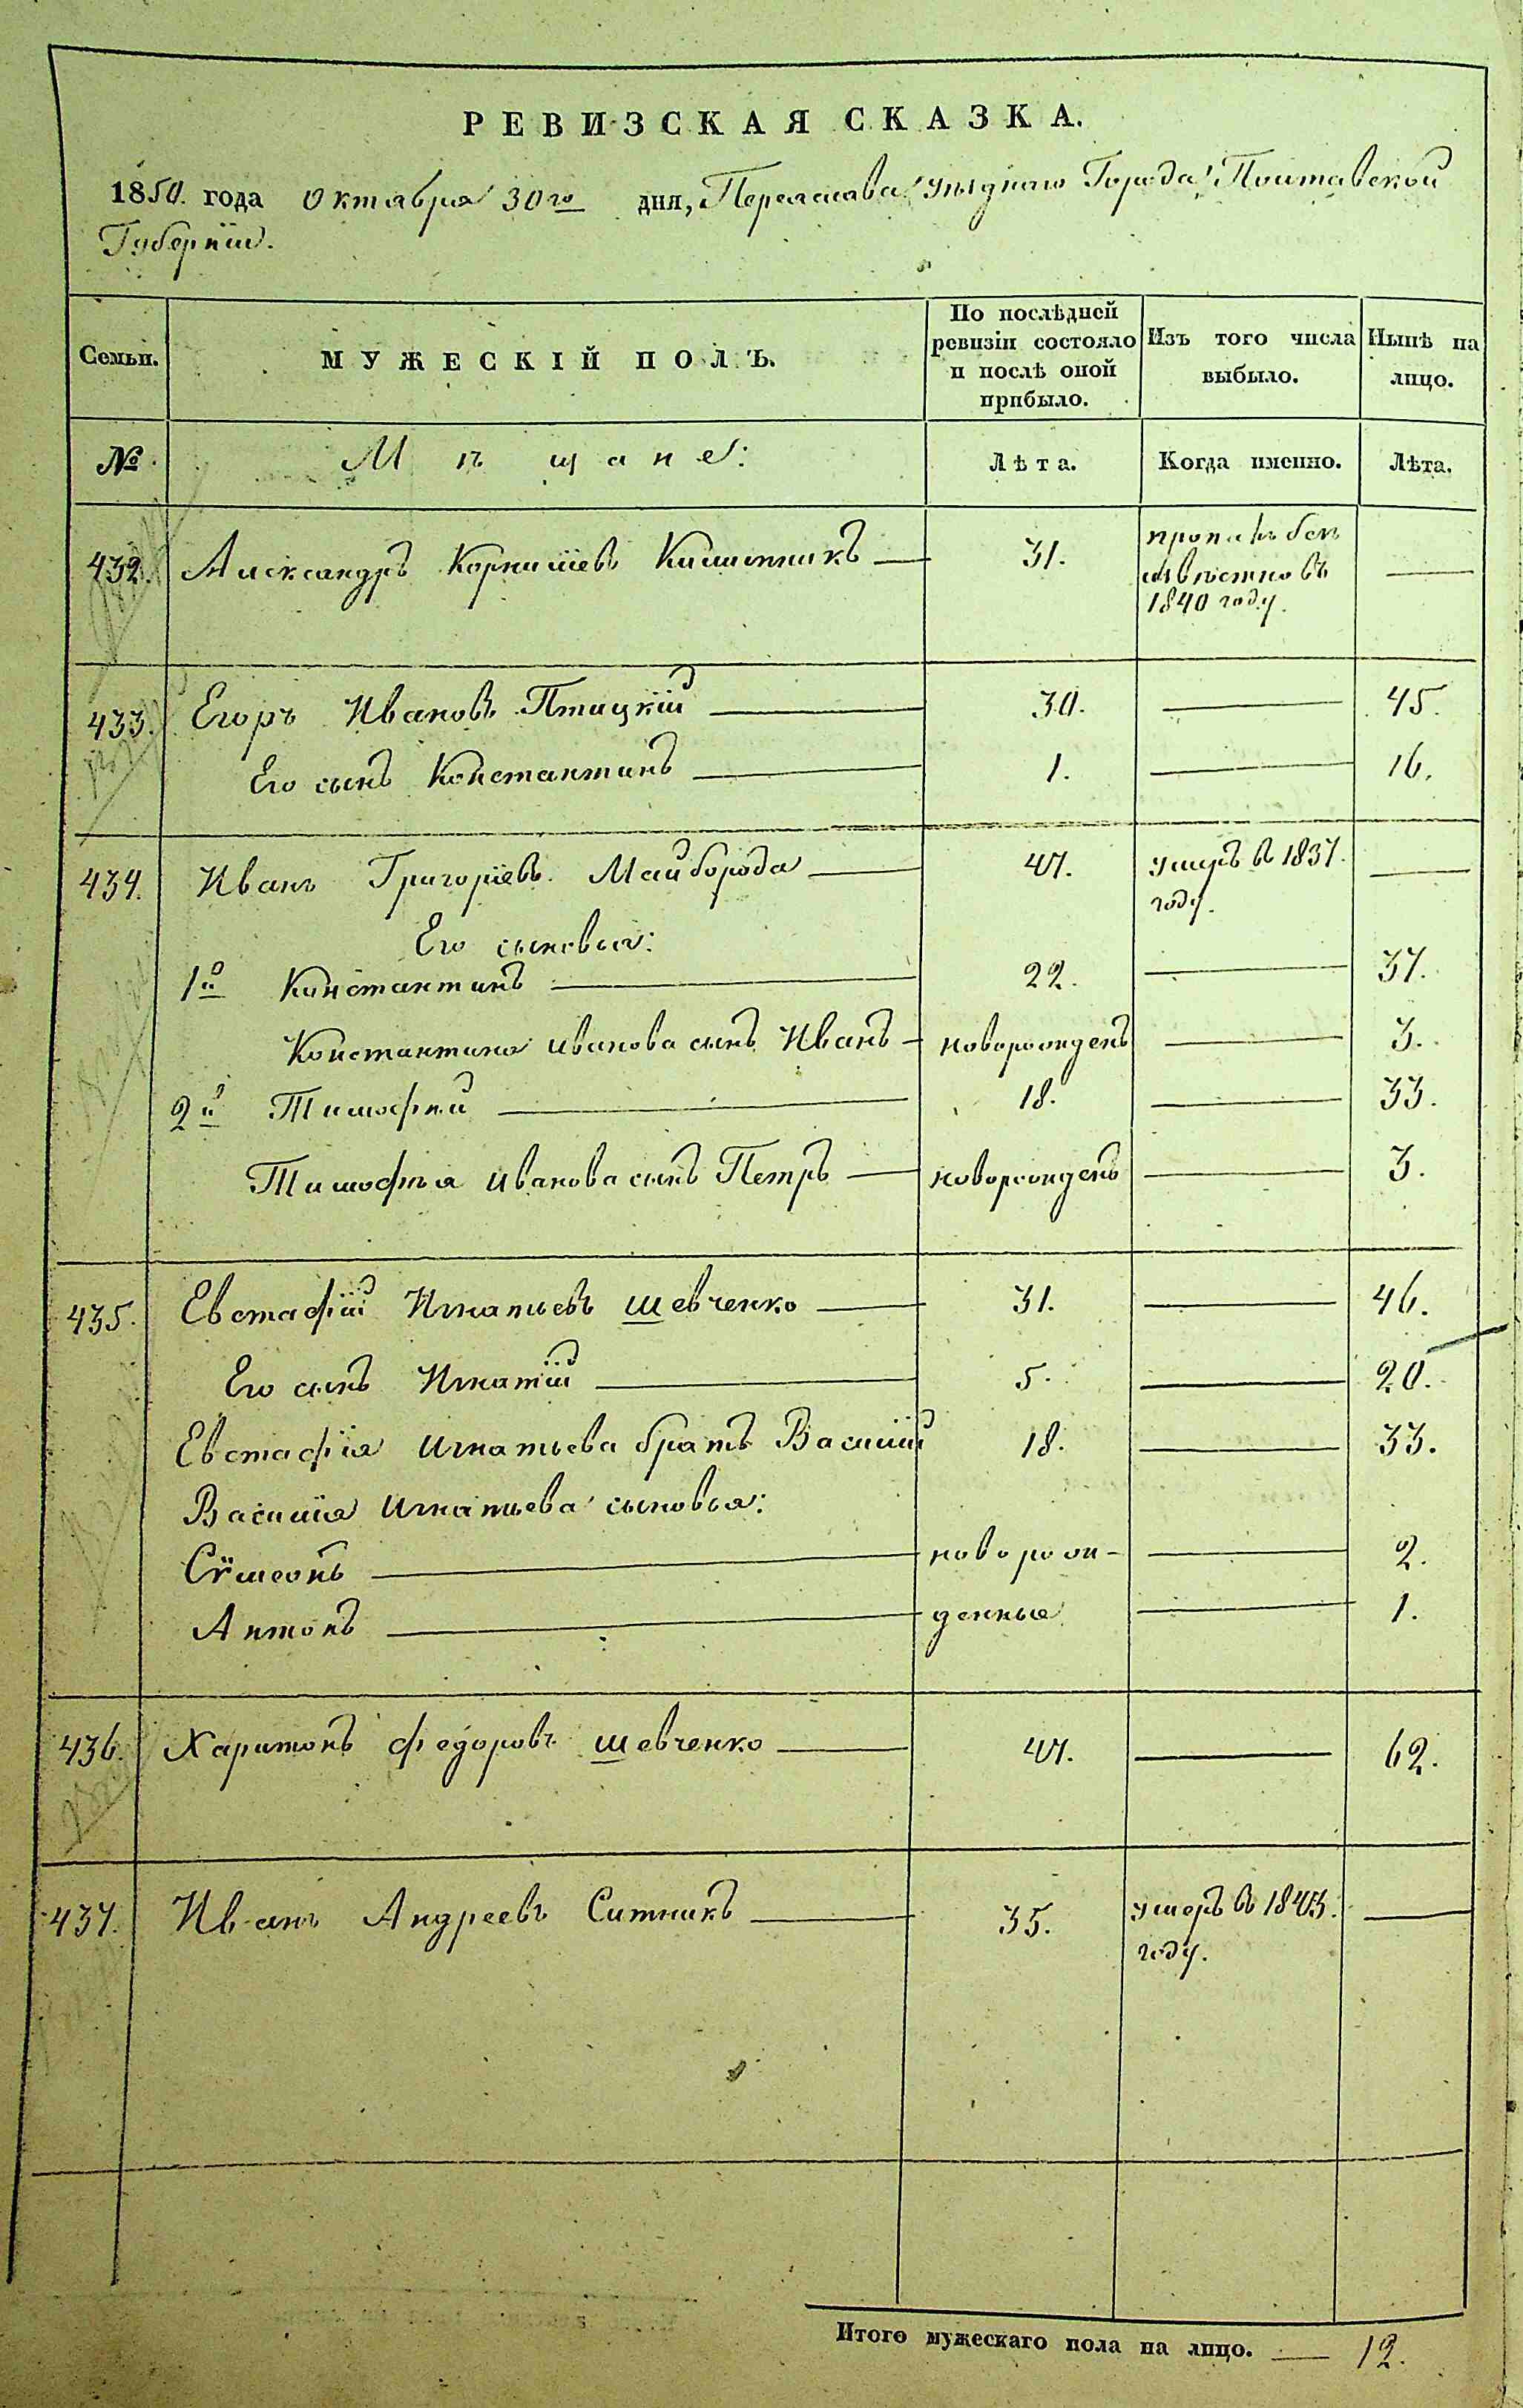 РЕВИЗСКАЯ СКАЗКА.
1850. года Октября 30го дня, Переяслава Уѣзднаго Города Полтавской
Губерніи.
Семьи. МУЖЕСКІЙ ПОЛЪ. По послѣдней ревизіи состояло и послѣ оной прибыло. Изъ того числа выбыло. Нынѣ на лицо.
№ Мѣщане: Лѣта. Когда именно. Лѣта.
432. Александръ Корнилїевъ 31. пропалъ безъ
извѣстно въ
1840 году.
433. Егоръ Ивановъ Птицкїй 30. 45.
Его сынъ Константинъ 1. 16.
434. Иванъ Григорїевъ Майборода 47. умеръ в 1837.
году.
Его сыновья:
1й Константинъ 22. 37.
Константина Иванова сынъ Иванъ новорожденъ 3.
2й Тимофѣй 18. 33.
Тимофѣя Иванова сынъ Петръ новорожденъ 3.
435. Евстафїй Игнатьевъ Шевченко 31. 46.
Его сынъ Игнатїй 5. 20.
Евстафїя Игнатьева братъ Василїй 18. 33.
Василїя Игнатьева сыновья:
Сѵмеонъ новорож- 2.
Антонъ денные 1.
436. Харитонъ Федоровъ Шевченко 47. 62.
437. Иванъ Андреевъ Ситникъ 35. умеръ в 1843.
году.
Итого мужескаго пола на лицо. 12.